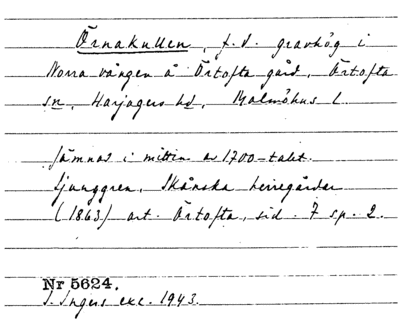 Örnakullen, f.d. gravhög i
Norra vången å Örtofta gård, Örtofta
sn, Harjagers hd, Malmöhus l.
Jämnad i mitten av 1700-talet.
Ljunggren, Skånska herregårdar
(1863) art. Örtofta, sid. 7 sp. 2.
Nr 5624.
I. Ingers exc. 1943.